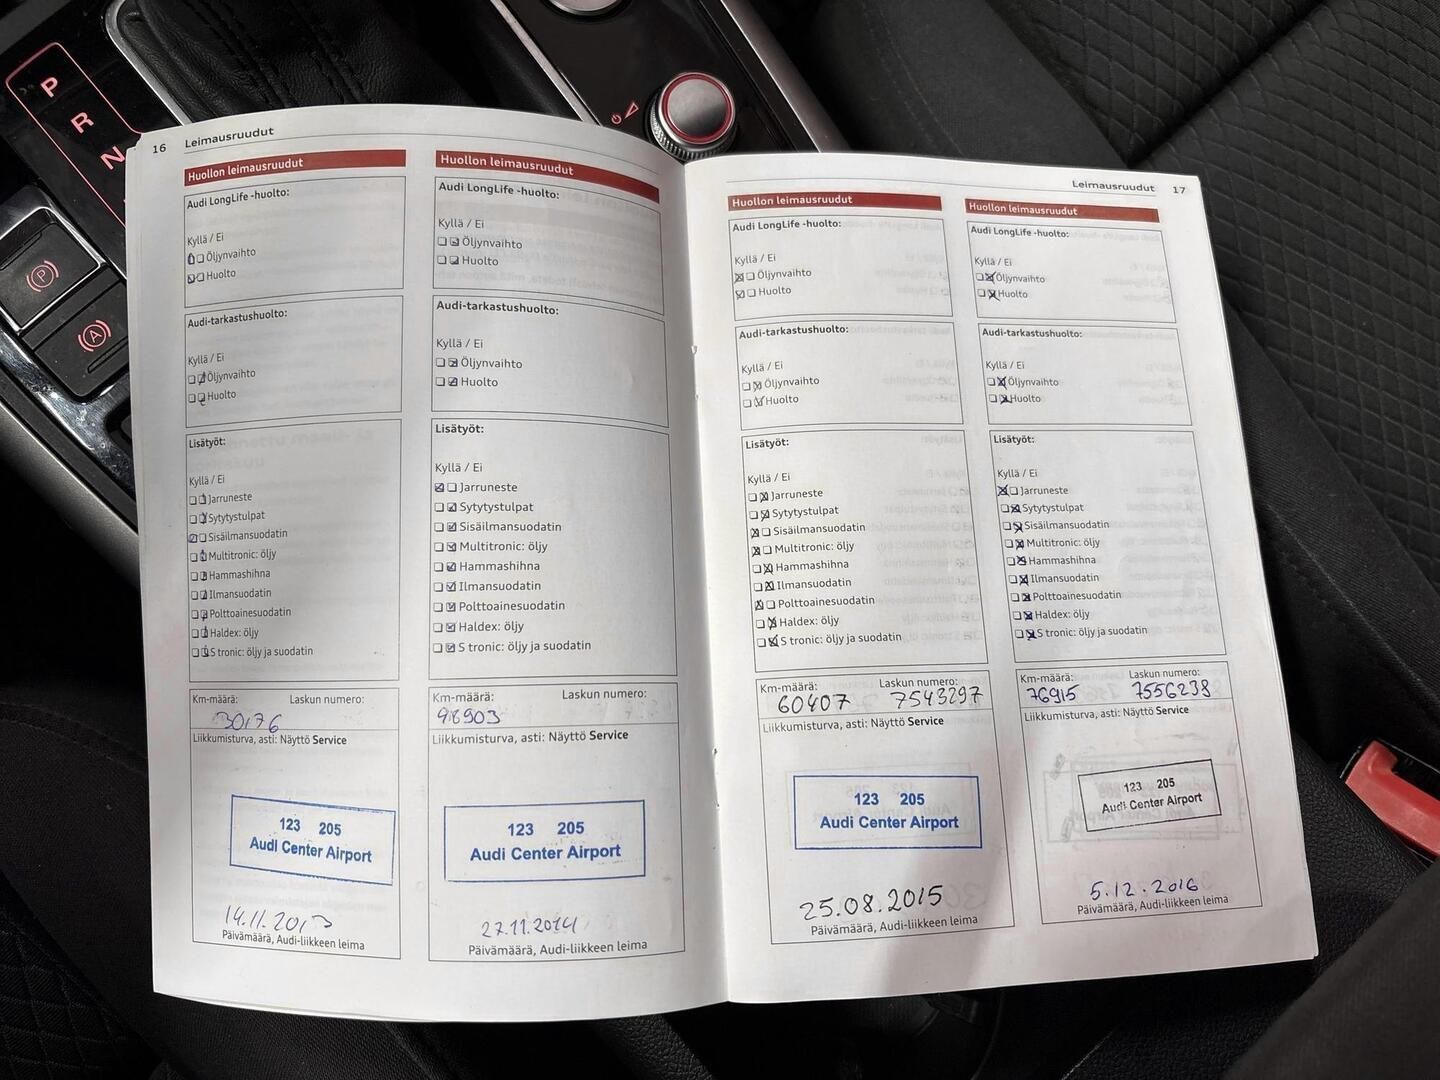 P
R
N
16 Leimausruudut
Huollon leimausruudut
Audi LongLife -huolto:
Kyllä / Ei
Öljynvaihto
Huolto
Audi-tarkastushuolto:
Kyllä / Ei
Öljynvaihto
Huolto
Lisätyöt:
Kyllä / Ei
Jarruneste
Sytytystulpat
Sisäilmansuodatin
Multitronic: öljy
Hammashihna
Ilmansuodatin
Polttoainesuodatin
Haldex: öljy
S tronic: öljy ja suodatin
Km-määrä: Laskun numero:
30176
Liikkumisturva, asti: Näyttö Service
123 205
Audi Center Airport
14.11.2013
Päivämäärä, Audi-liikkeen leima
Huollon leimausruudut
Audi LongLife -huolto:
Kyllä / Ei
Öljynvaihto
Huolto
Audi-tarkastushuolto:
Kyllä / Ei
Öljynvaihto
Huolto
Lisätyöt:
Kyllä / Ei
Jarruneste
Sytytystulpat
Sisäilmansuodatin
Multitronic: öljy
Hammashihna
Ilmansuodatin
Polttoainesuodatin
Haldex: öljy
S tronic: öljy ja suodatin
Km-määrä: Laskun numero:
Liikkumisturva, asti: Näyttö Service
123 205
Audi Center Airport
27.11.2014
Päivämäärä, Audi-liikkeen leima
Leimausruudut 17
Huollon leimausruudut
Audi LongLife -huolto:
Kyllä / Ei
Öljynvaihto
Huolto
Audi-tarkastushuolto:
Kyllä / Ei
Öljynvaihto
Huolto
Lisätyöt:
Kyllä / Ei
Jarruneste
Sytytystulpat
Sisäilmansuodatin
Multitronic: öljy
Hammashihna
Ilmansuodatin
Polttoainesuodatin
Haldex: öljy
S tronic: öljy ja suodatin
Km-määrä: Laskun numero:
60407 7543297
Liikkumisturva, asti: Näyttö Service
123 205
Audi Center Airport
25.08.2015
Päivämäärä, Audi-liikkeen leima
Huollon leimausruudut
Audi LongLife -huolto:
Kyllä / Ei
Öljynvaihto
Huolto
Audi-tarkastushuolto:
Kyllä / Ei
Öljynvaihto
Huolto
Lisätyöt:
Kyllä / Ei
Jarruneste
Sytytystulpat
Sisäilmansuodatin
Multitronic: öljy
Hammashihna
Ilmansuodatin
Polttoainesuodatin
Haldex: öljy
S tronic: öljy ja suodatin
Km-määrä: Laskun numero:
76915 7556238
Liikkumisturva, asti: Näyttö Service
123 205
Audi Center Airport
5.12.2016
Päivämäärä, Audi-liikkeen leima